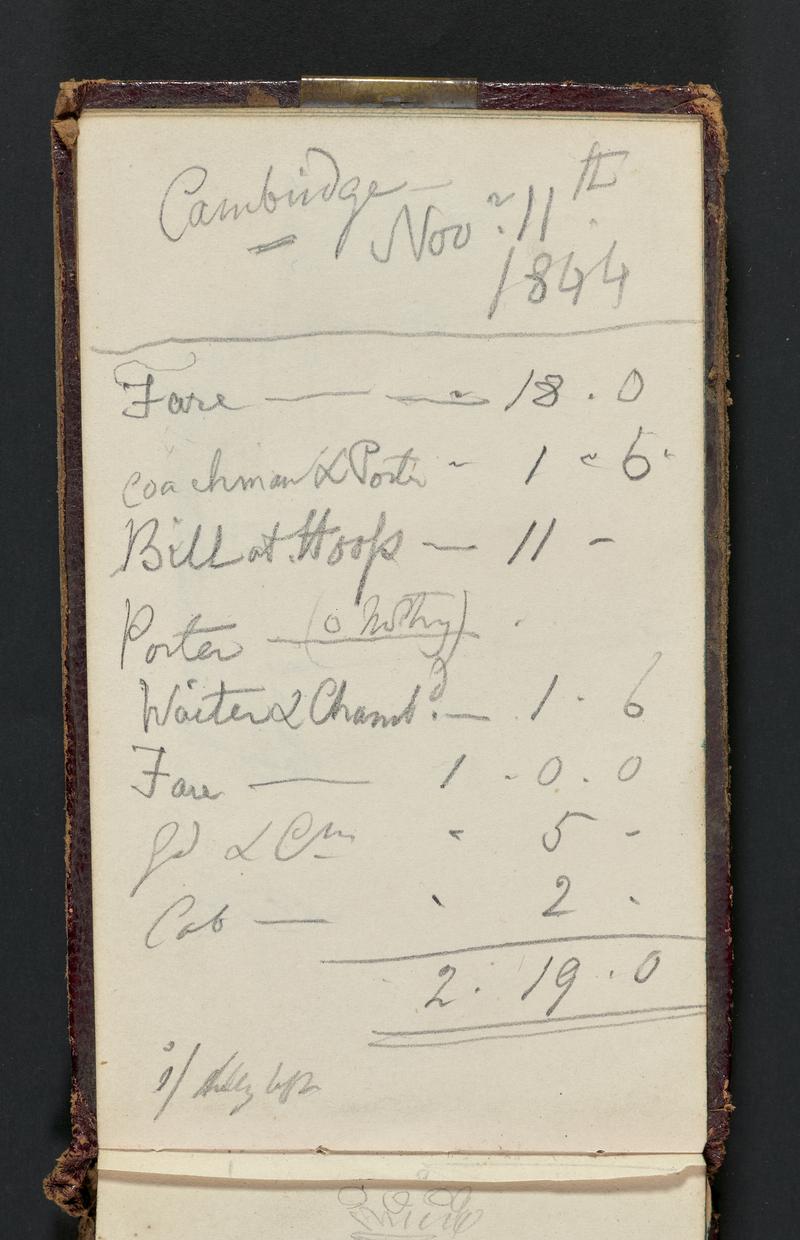 Cambridge —
Novr. 11th
1844
Fare — — 18 . 0
Coachman & Porter - 1 - 6
Bill at Hoop — 11 -
Porter — (o Nothg)
Waiter & Chambd. — 1 . 6
Fare — 1 . 0 . 0
Gd & Cm - 5 -
Cab — 2 .
2 . 19 . 0